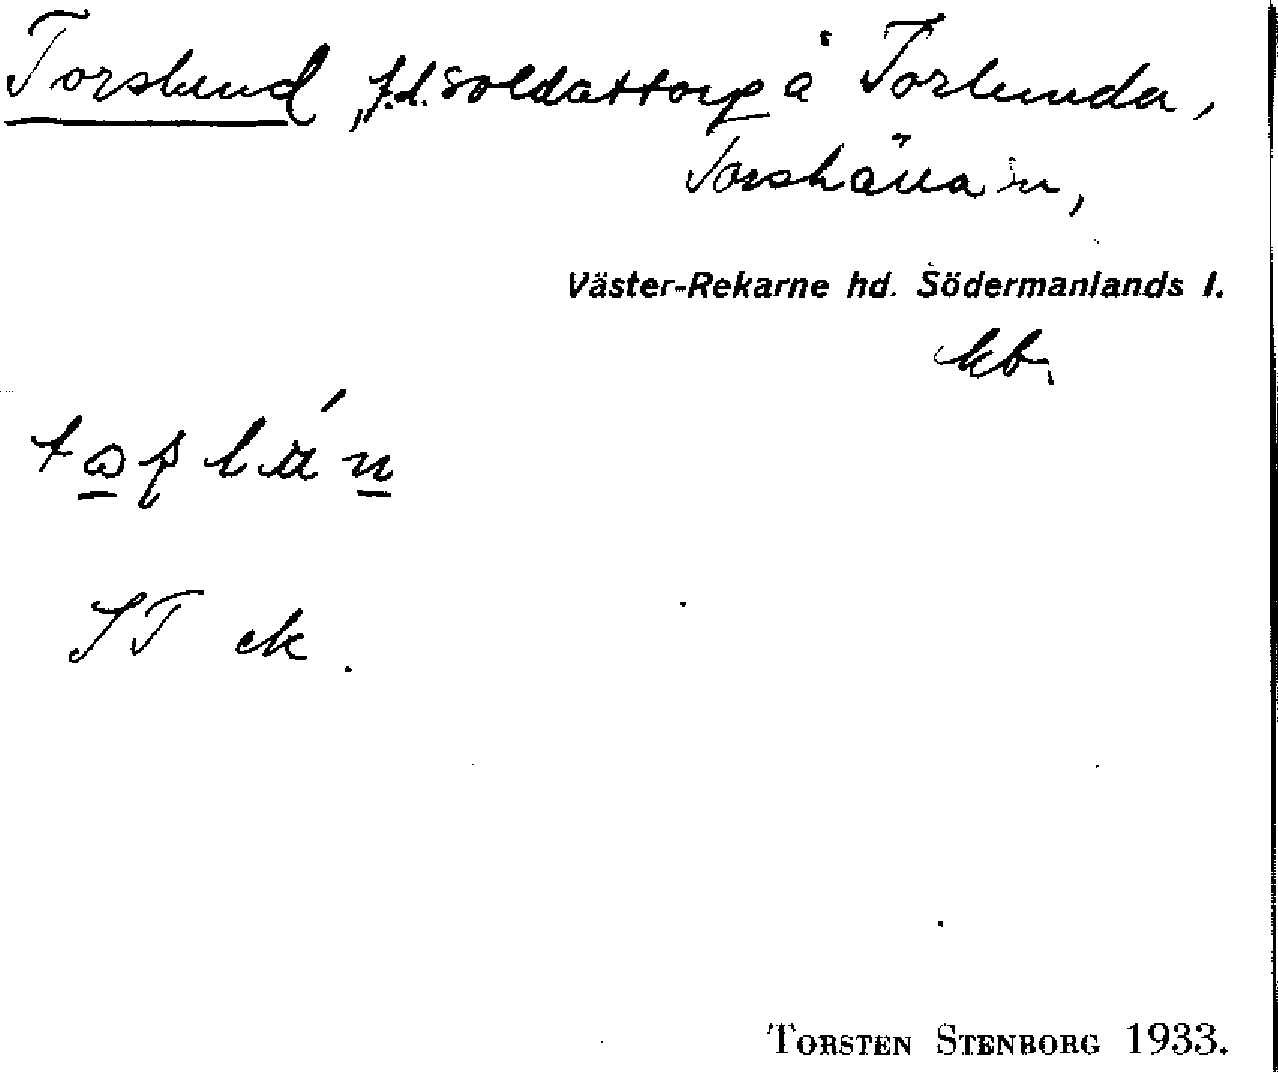 Torslund, f.d. soldattorp å Torlunda,
Torshälla sn,
Väster-Rekarne hd. Södermanlands l.
kb.
ST ek.
TORSTEN STENBORG 1933.